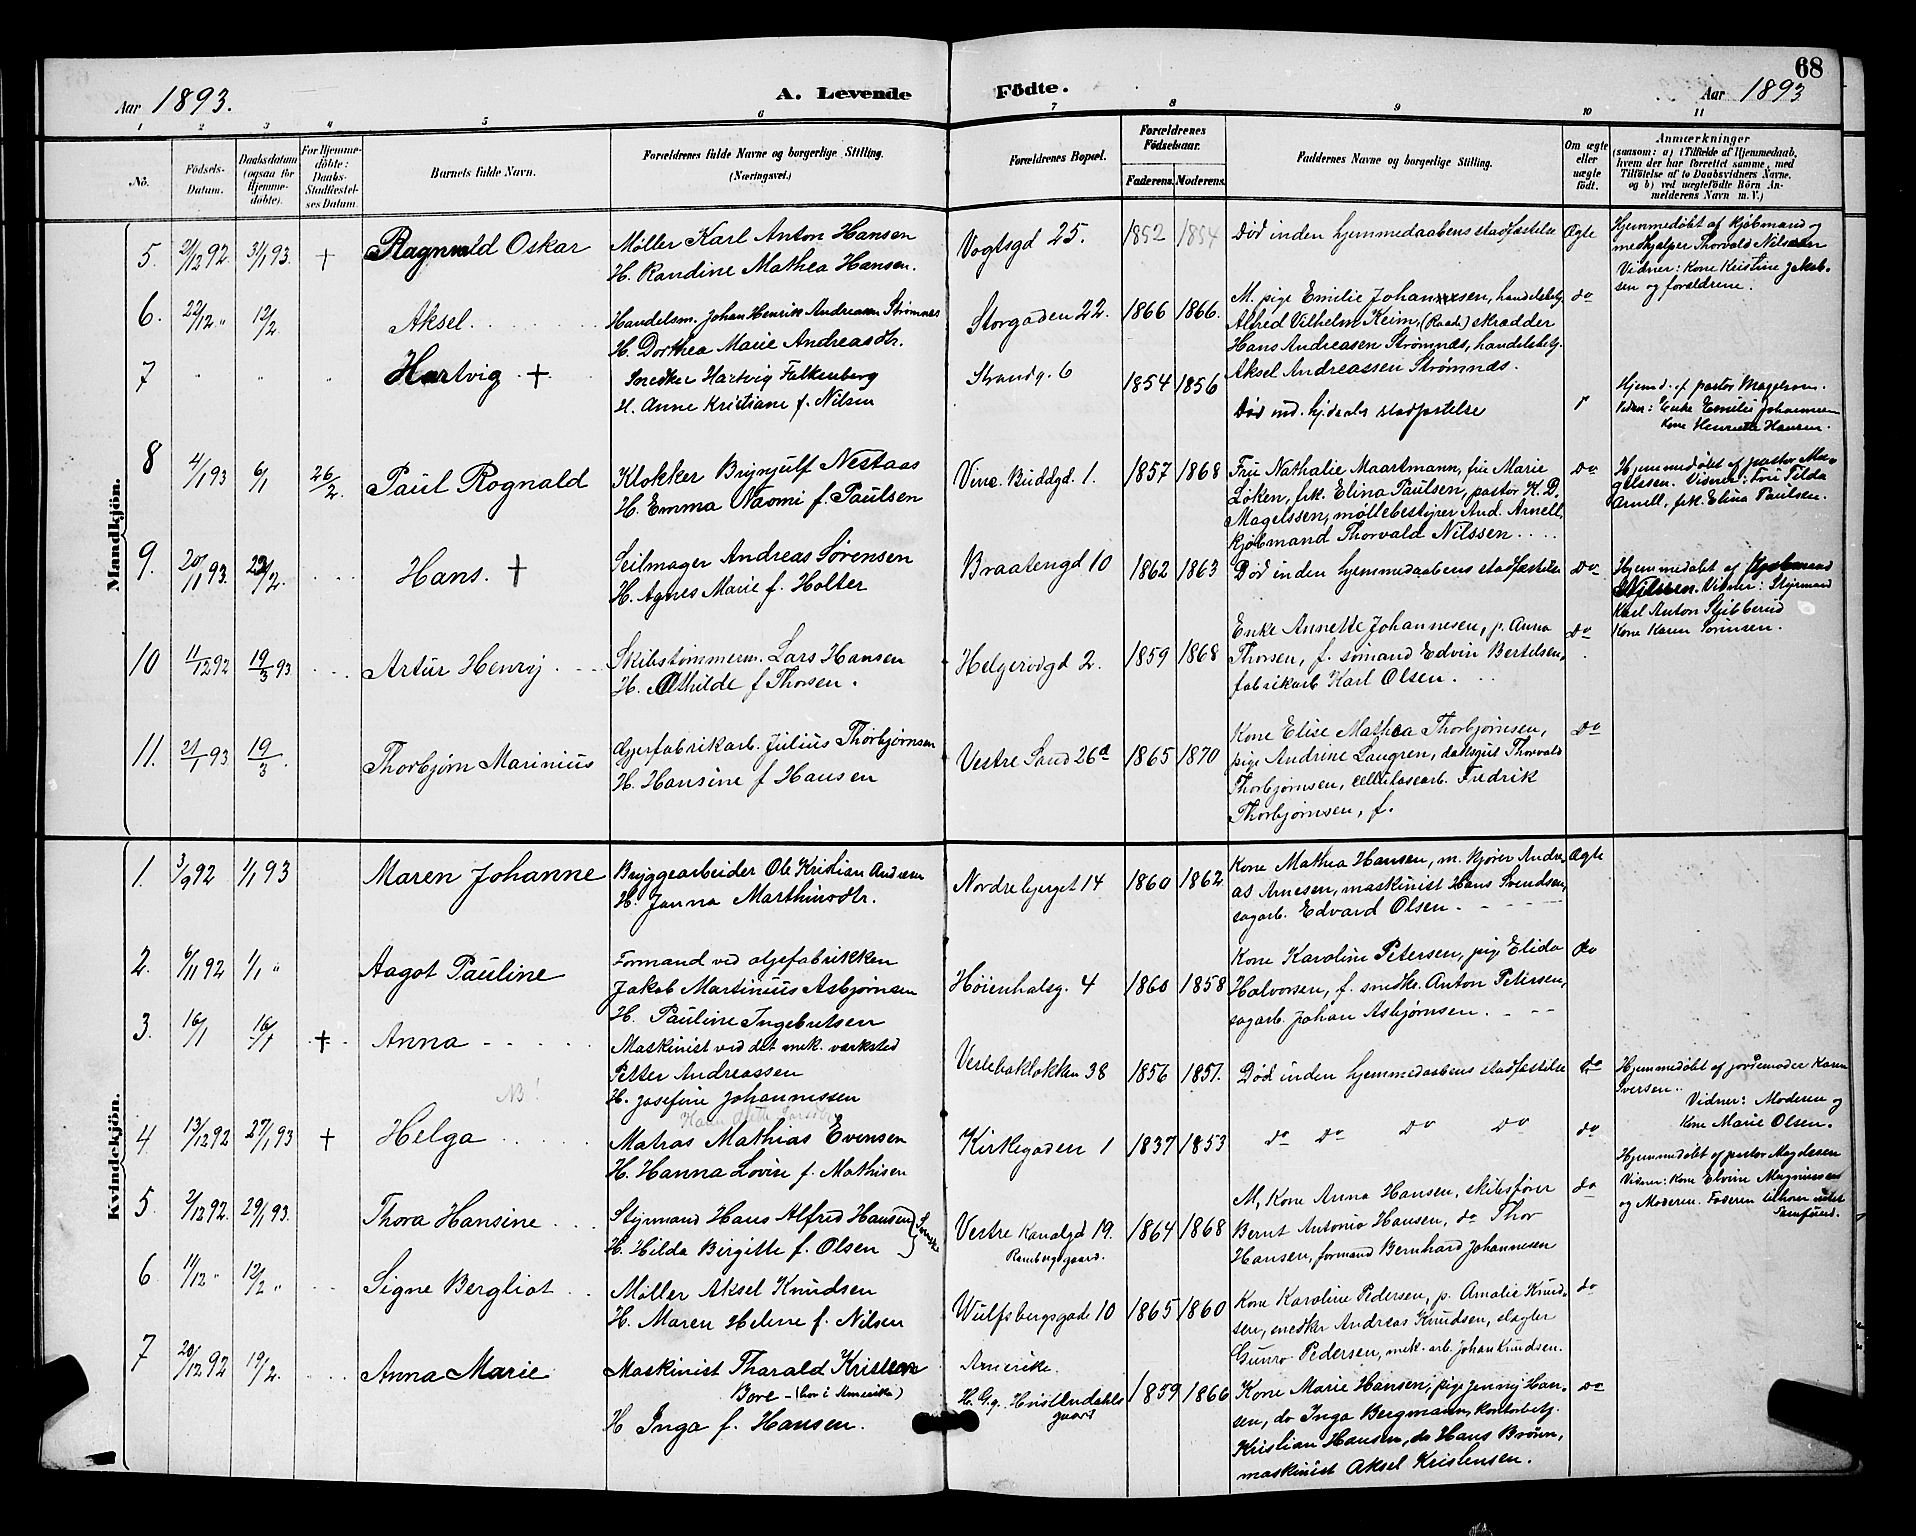 68
Aar 1893. A. Levende Födte. Aar 1893
1 2 3 4 5 6 7 8 9 10 11
No. Födsels-Datum. Daabsdatum (ogsaa for Hjemme-döbte). For Hjemme-döbte: Daabs-Stadfæstel-ses Datum. Barnets fulde Navn. Forældrenes fulde Navne og borgerlige Stilling. (Næringsvei.) Forældrenes Bopæl. Forældrenes Födselsaar. Faderens. Moderens. Faddernes Navne og borgerlige Stilling. Om ægte eller uægte födt. Anmærkninger (saasom: a) i Tilfælde af Hjemmedaab, hvem der har forrettet samme, med Tilföielse af to Daabsvidners Navne, og b) ved uægtefödte Börn An-melderens Navn m. V.)
Mandkjön.
5. 21/12 92. 3/1 93. + Ragnvald Oskar
Møller Karl Anton Hansen
H. Randine Mathea Hansen.
Vogtsgd 25. 1852 1854
Død inden hjemmedaabens stadfæstelse Ægte
Hjemmedøbt af kjøbmand og
medhjælper Thorvald Nilssen
Vidner: Kone Kristine Jakob-
sen og forældrene.
6. 22/12 " 12/2 Aksel
Handelsm. Johan Henrik Andreasen Strømnes
H. Dorthea Marie Andreasdtr.
Storgaden 22. 1866 1866.
M. pige Emilie Johannesen, handelsbetj.
Alfred Vilhelm Keim, (Raade) skrædder
Hans Andreasen Strømnæs, handelsbetj.
Aksel Andreassen Strømnæs.
do
7 " " " Hartvig +
Snedker Hartvig Falkenberg
H. Anne Kristiane f. Nilsen
Strandg. 6 1854 1856
Død ind. hj.daabs stadfæstelse
Hjemd. af pastor Magelssen.
Vidner: Enke Emilie Johannesen
Kone Henriette Hansen.
8 4/1 93 6/1 26/2. Paul Rognald
Klokker Brynjulf Nestaas
H. Emma Naomi f. Paulsen
Vinc. Buddgd. 1. 1857 1868
Fru Nathalie Maartmann, frue Marie
Løken, frk. Elina Paulsen, pastor K. D.
Magelssen, møllebestyrer And. Arnell,
kjøbmand Thorvald Nilssen
Do
Hjemmedøbt af pastor Ma-
gelssen. Vidner: Fru Tilda
Arnell, frk. Elina Paulsen.
9. 20/11 93. 22/2. Hans. +
Seilmager Andreas Sørensen
H. Agnes Marie f. Holter
Braatengd 10 1862 1863
Død inden hjemmedaabens stadfæstelse Do
Hjemmedøbt af Kjøbmand
Nilssen. Vidner: Styrmand
Karl Anton Stibberud
Kone Karen Sørensen.
10 11/12 92 19/3 93 Artur Henry
Skibstømmerm. Lars Hansen
H. Mathilde f Thorsen.
Helgerødgd 2. 1859 1868
Enke Annette Johannesen, p. Anna
Thorsen, f. sømand Edvin Bertelsen,
fabrikarb Karl Olsen.
Do
11. 21/1 93 19/3. Thorbjørn Marinius
Oljefabrikarb. Julius Thorbjørnsen
H. Hansine f Hansen
Vestre Sand 26d 1865 1870
Kone Elise Mathea Thorbjørnsen,
pige Andrine Laugren, daksgut Thorvald
Thorbjørnsen, cellulosearb. Fredrik
Thorbjørnsen, f.
Do
Kvindekjön.
1. 3/9 92 1/1 93 Maren Johanne
Bryggearbeider Ole Kristian Andersen
H. Janna Marthinsdtr.
Nordrebjerget 14 1860 1862
Kone Mathea Hansen, m. kjører Andre
as Arnesen, maskinist Hans Svendsen,
sagarb. Edvard Olsen.
Ægte
2. 6/11 92 1/1 " Aagot Pauline
Formand ved oljefabrikken
Jakob Martinius Asbjørnsen
H. Pauline Ingebretsen
Høienhalsg. 4 1860 1858
Kone Karoline Petersen, pige Elida
Halvorsen, f. snedk. Anton Petersen,
sagarb. Johan Asbjørnsen.
do
3. 16/1 16/1 + Anna
Maskinist ved det mek. værksted
Petter Andreassen
H. Josefine Johannessen
Vestebakløkken 38 1856 1857.
Død inden hjemmedaabens stadfæstelse do
Hjemmedøbt af jordemoder Karen
Iversen.
Vidner: Moderen og
Kone Marie Olsen.
NB!
4 13/12 92 27/1 93 + Helga
Matros Mathias Evensen
H. Hanna Lovise f. Mathisen
Kirkegaden 1 1837 1853
do Do Do Do do
Hjemmedøbt af pastor Magelssen
Vidner: Kone Elvine Magnussen
og Moderen. Faderen tilhører intet
Samfund.
5 2/12 92. 29/1 93. Thora Hansine
Styrmand Hans Alfred Hansen
H. Hilda Birgitte f. Olsen
Vestre Kanalgd 19. 1864 1868
Rambergsgaard.
M, Kone Anna Hansen, skibsfører
Bernt Antonio Hansen, do Thor
Hansen, formand Bernhard Johannesen
do
6 11/12 " 12/2 " Signe Bergliot
Møller Aksel Knudsen
H. Maren Helene f. Nilsen
Wulfsbergsgade 10 1865 1860
Kone Karoline Pedersen, p. Amalie Knud-
sen, snedker Andreas Knudsen, slagter
Gunro Pedersen, mek. arb. Johan Knudsen.
do
7 20/12 92 19/2. Anna Marie
Maskinist Tharald Kristensen
Bore - (bor i Amerika)
H Inga f. Hansen.
Amerika.
H. G.g. Hvistendahls
gaard
1859 1866
Kone Marie Hansen, pige Jenny Han-
sen, do Inga Bergmann, Kontorbetj.
Kristian Hansen, do Hans Brønn,
maskinist Aksel Kristensen.
do